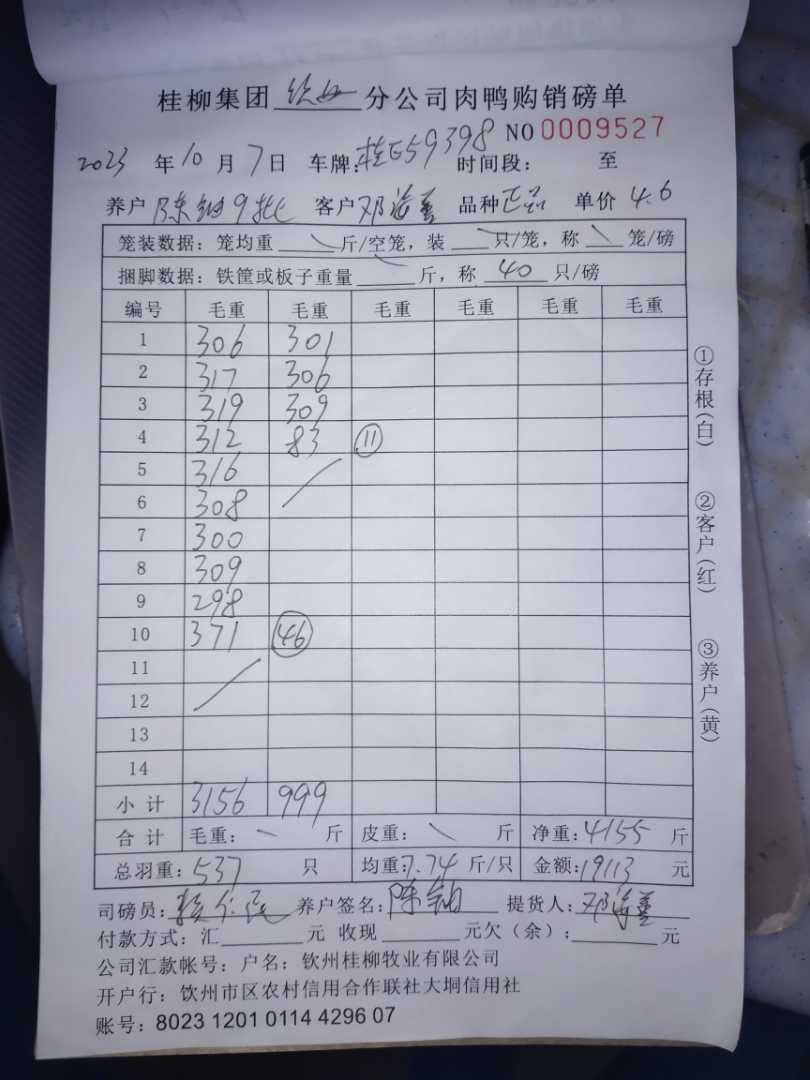 桂柳集团 钦州 分公司肉鸭购销磅单
NO 0009527
2023 年 10 月 7 日 车牌: 桂E59398 时间段: 至
养户 陈钢9批 客户 邓海 品种 正品 单价 4.6
笼装数据: 笼均重 \ 斤/空笼, 装 \ 只/笼, 称 \ 笼/磅
捆脚数据: 铁筐或板子重量 \ 斤, 称 40 只/磅
编号 毛重 毛重 毛重 毛重 毛重 毛重
1 306 301
2 317 306
3 319 309
4 312 83 ⑪
5 316
6 308
7 300
8 309
9 298
10 371 ㊻
11
12
13
14
小计 3156 999
合计 毛重: 斤 皮重: \ 斤 净重: 4155 斤
总羽重: 537 只 均重: 7.74 斤/只 金额: 19113 元
司磅员: 养户签名: 陈钢 提货人: 邓海
付款方式: 汇 元 收现 元欠(余): 元
公司汇款帐号: 户名: 钦州桂柳牧业有限公司
开户行: 钦州市区农村信用合作联社大垌信用社
账号: 8023 1201 0114 4296 07
①存根(白)
②客户(红)
③养户(黄)